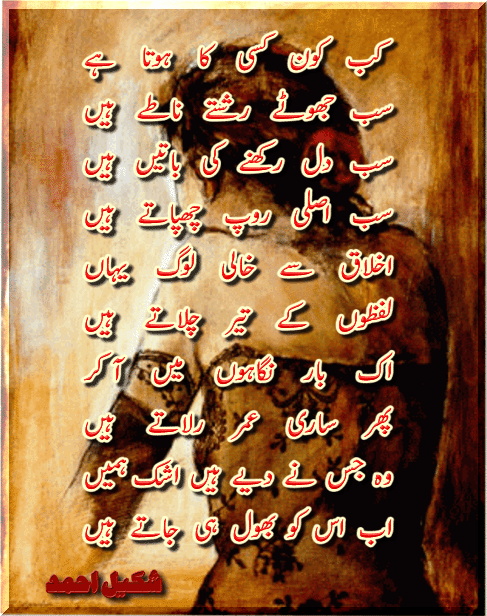 کب کون کسی کا ہوتا ہے
سب جھوٹے رشتے ناطے ہیں
سب دل رکھنے کی باتیں ہیں
سب اصلی روپ چھپاتے ہیں
اخلاق سے خالی لوگ یہاں
لفظوں کے تیر چلاتے ہیں
اک بار نگاہوں میں آ کر
پھر ساری عمر رلاتے ہیں
وہ جس نے دیے ہیں اشک ہمیں
اب اس کو بھول ہی جاتے ہیں
شکیل احمد